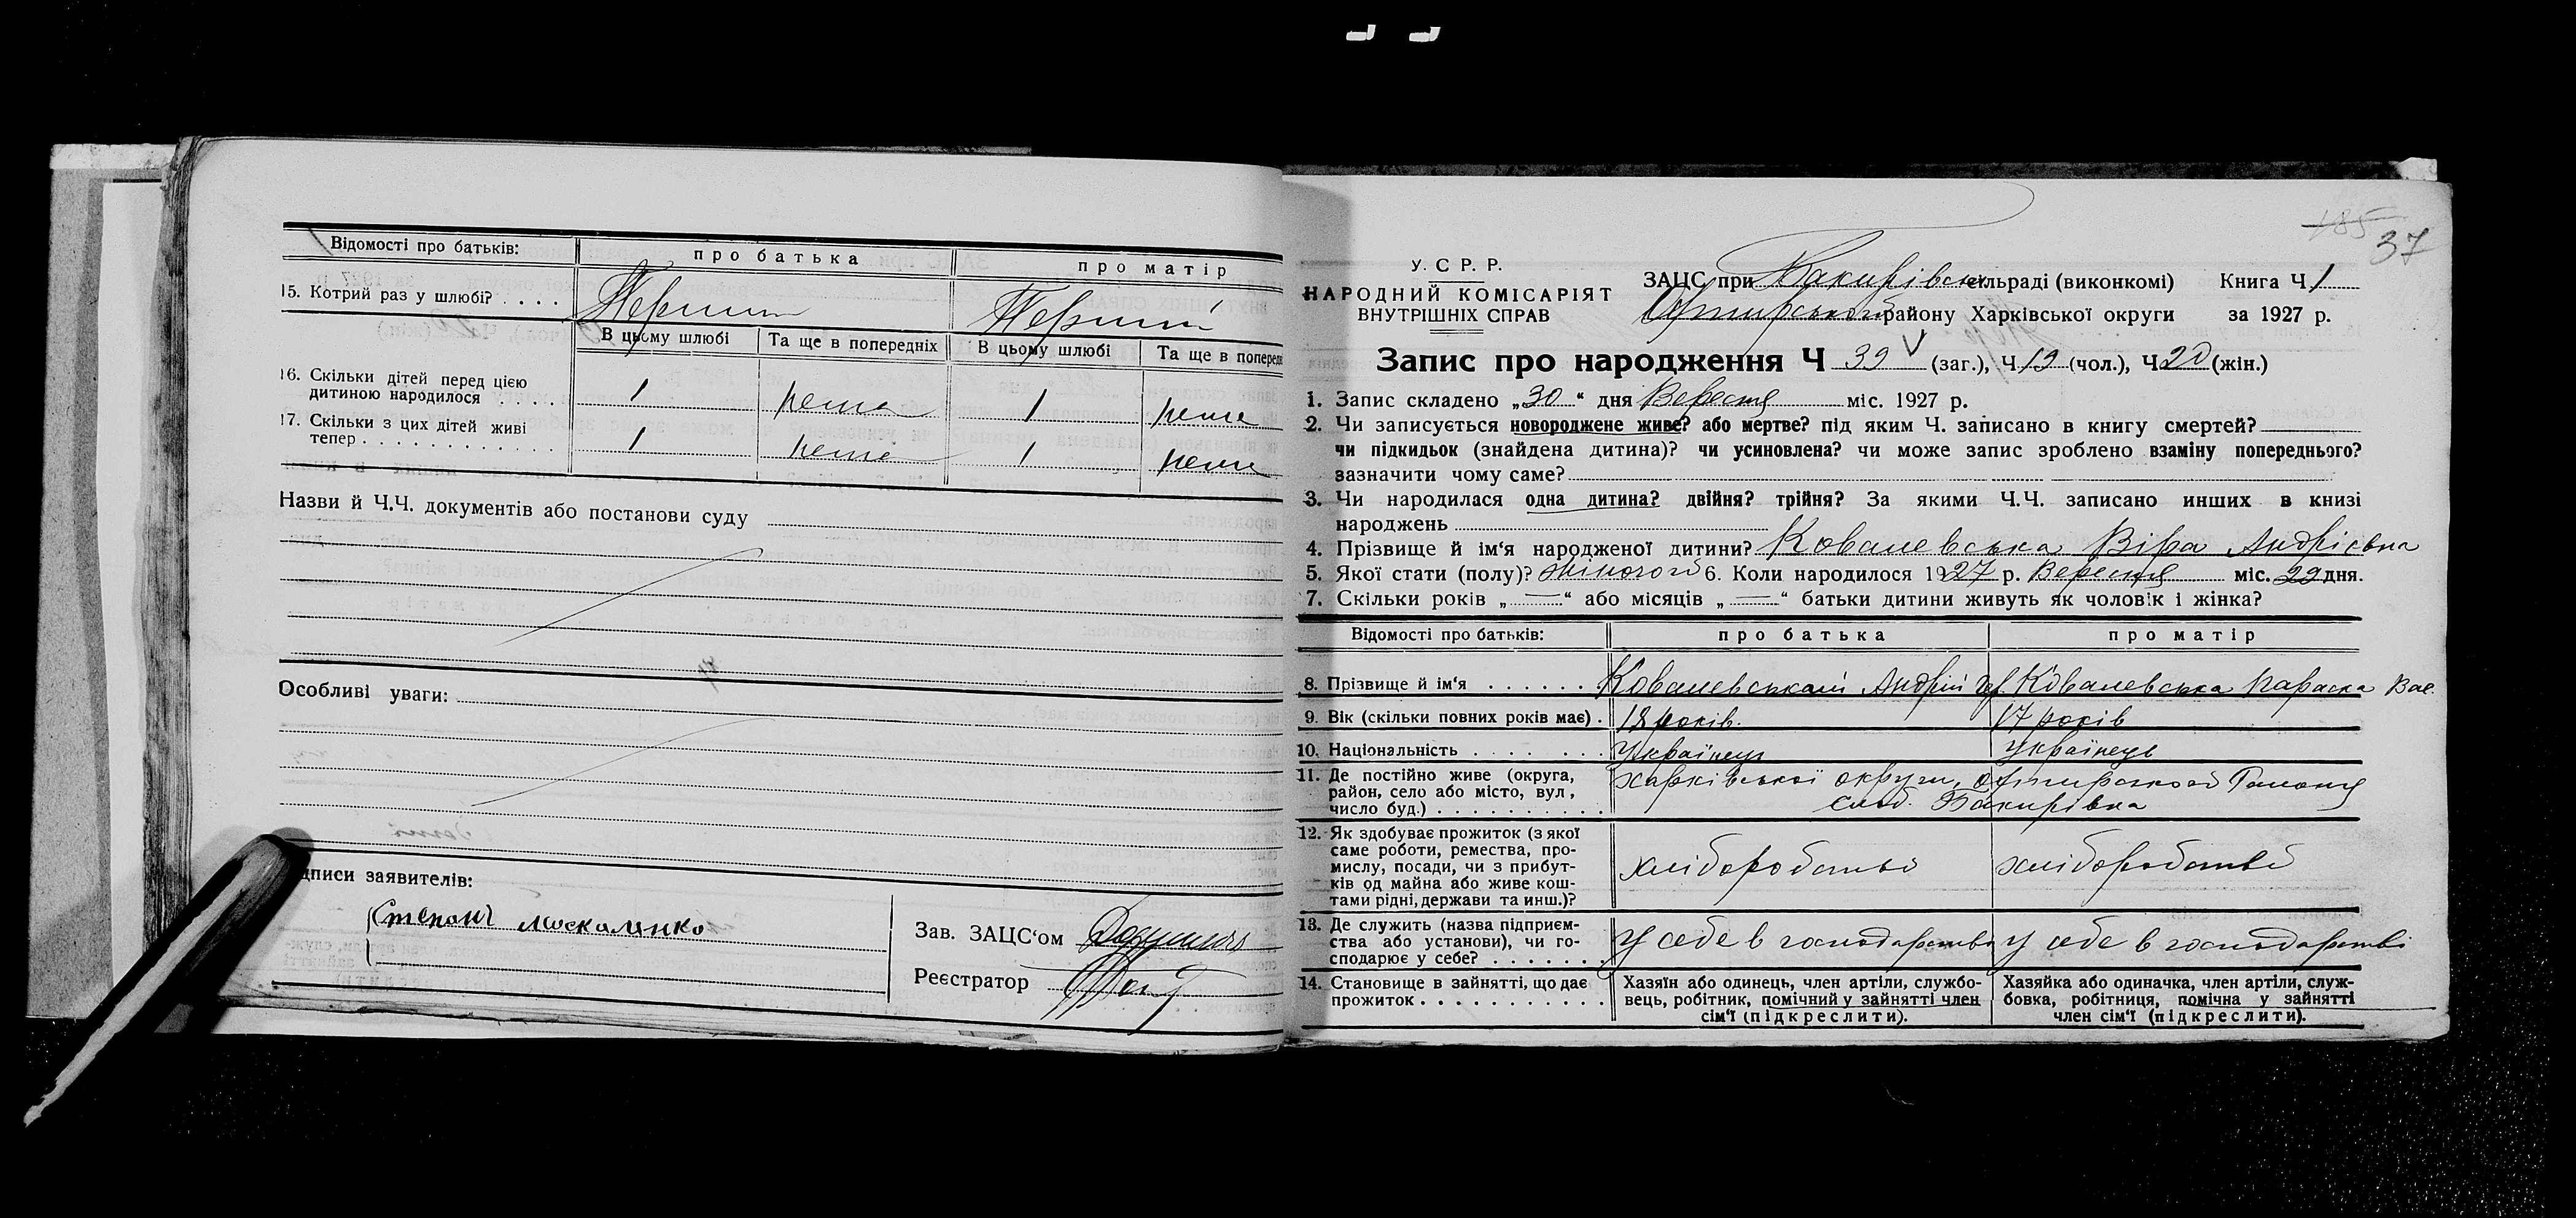 Відомості про батьків: про батька про матір
15. Котрий раз у шлюбі? . . . . Перший Перший
В цьому шлюбі Та ще в попередніх В цьому шлюбі Та ще в попере
16. Скільки дітей перед цією
дитиною народилося . . . . 1 нема 1 нема
17. Скільки з цих дітей живі
тепер . . . . . . . . . . . . 1 нема 1 нема
Назви й Ч.Ч. документів або постанови суду
Особливі уваги:
дписи заявителів:
Степан москаленко
Зав. ЗАЦС‘ом
Реєстратор
185
37
У. С Р. Р.
НАРОДНИЙ КОМІСАРІЯТ
ВНУТРІШНІХ СПРАВ
ЗАЦС при Бакирівськ сільраді (виконкомі) Книга Ч 1
Охтирського району Харківської округи за 1927 р.
Запис про народження Ч 39 (заг.), Ч 19 (чол.), Ч 20 (жін.)
1. Запис складено „30“ дня Вересня міс. 1927 р.
2. Чи записується новороджене живе? або мертве? під яким Ч. записано в книгу смертей?
чи підкидьок (знайдена дитина)? чи усиновлена? чи може запис зроблено взаміну попереднього?
зазначити чому саме?
3. Чи народилася одна дитина? двійня? трійня? За якими Ч.Ч. записано инших в книзі
народжень
4. Прізвище й ім‘я народженої дитини? Ковалевська Віра Андрієвна
5. Якої стати (полу)? жіночой 6. Коли народилося 1927 р. Вересня міс. 29 дня.
7. Скільки років „—“ або місяців „—“ батьки дитини живуть як чоловік і жінка?
Відомості про батьків: про батька про матір
8. Прізвище й ім‘я . . . . . . Ковалевський Андрій Ковалевська Параска Вас.
9. Вік (скільки повних років має) . 18 років. 17 років
10. Національність . . . . . . . Українец Українець
11. Де постійно живе (округа,
район, село або місто, вул,
число буд.) . . . . . . . . . .
Харківської округи, Охтирського Району
слоб. Бакирівка
12. Як здобуває прожиток (з якої
саме роботи, ремества, про-
мислу, посади, чи з прибут-
ків од майна або живе кош-
тами рідні, держави та инш.)?
хліборобство хліборобство
13. Де служить (назва підприєм-
ства або установи), чи го-
сподарює у себе? . . . . . . .
У себе в господарстві у себе в господарстві
14. Становище в зайнятті, що дає
прожиток . . . . . . . . . . . .
Хазяїн або одинець, член артіли, службо-
вець, робітник, помічний у зайнятті член
сім‘ї (підкреслити).
Хазяйка або одиначка, член артіли, служ-
бовка, робітниця, помічна у зайнятті
член сім‘ї (підкреслити).